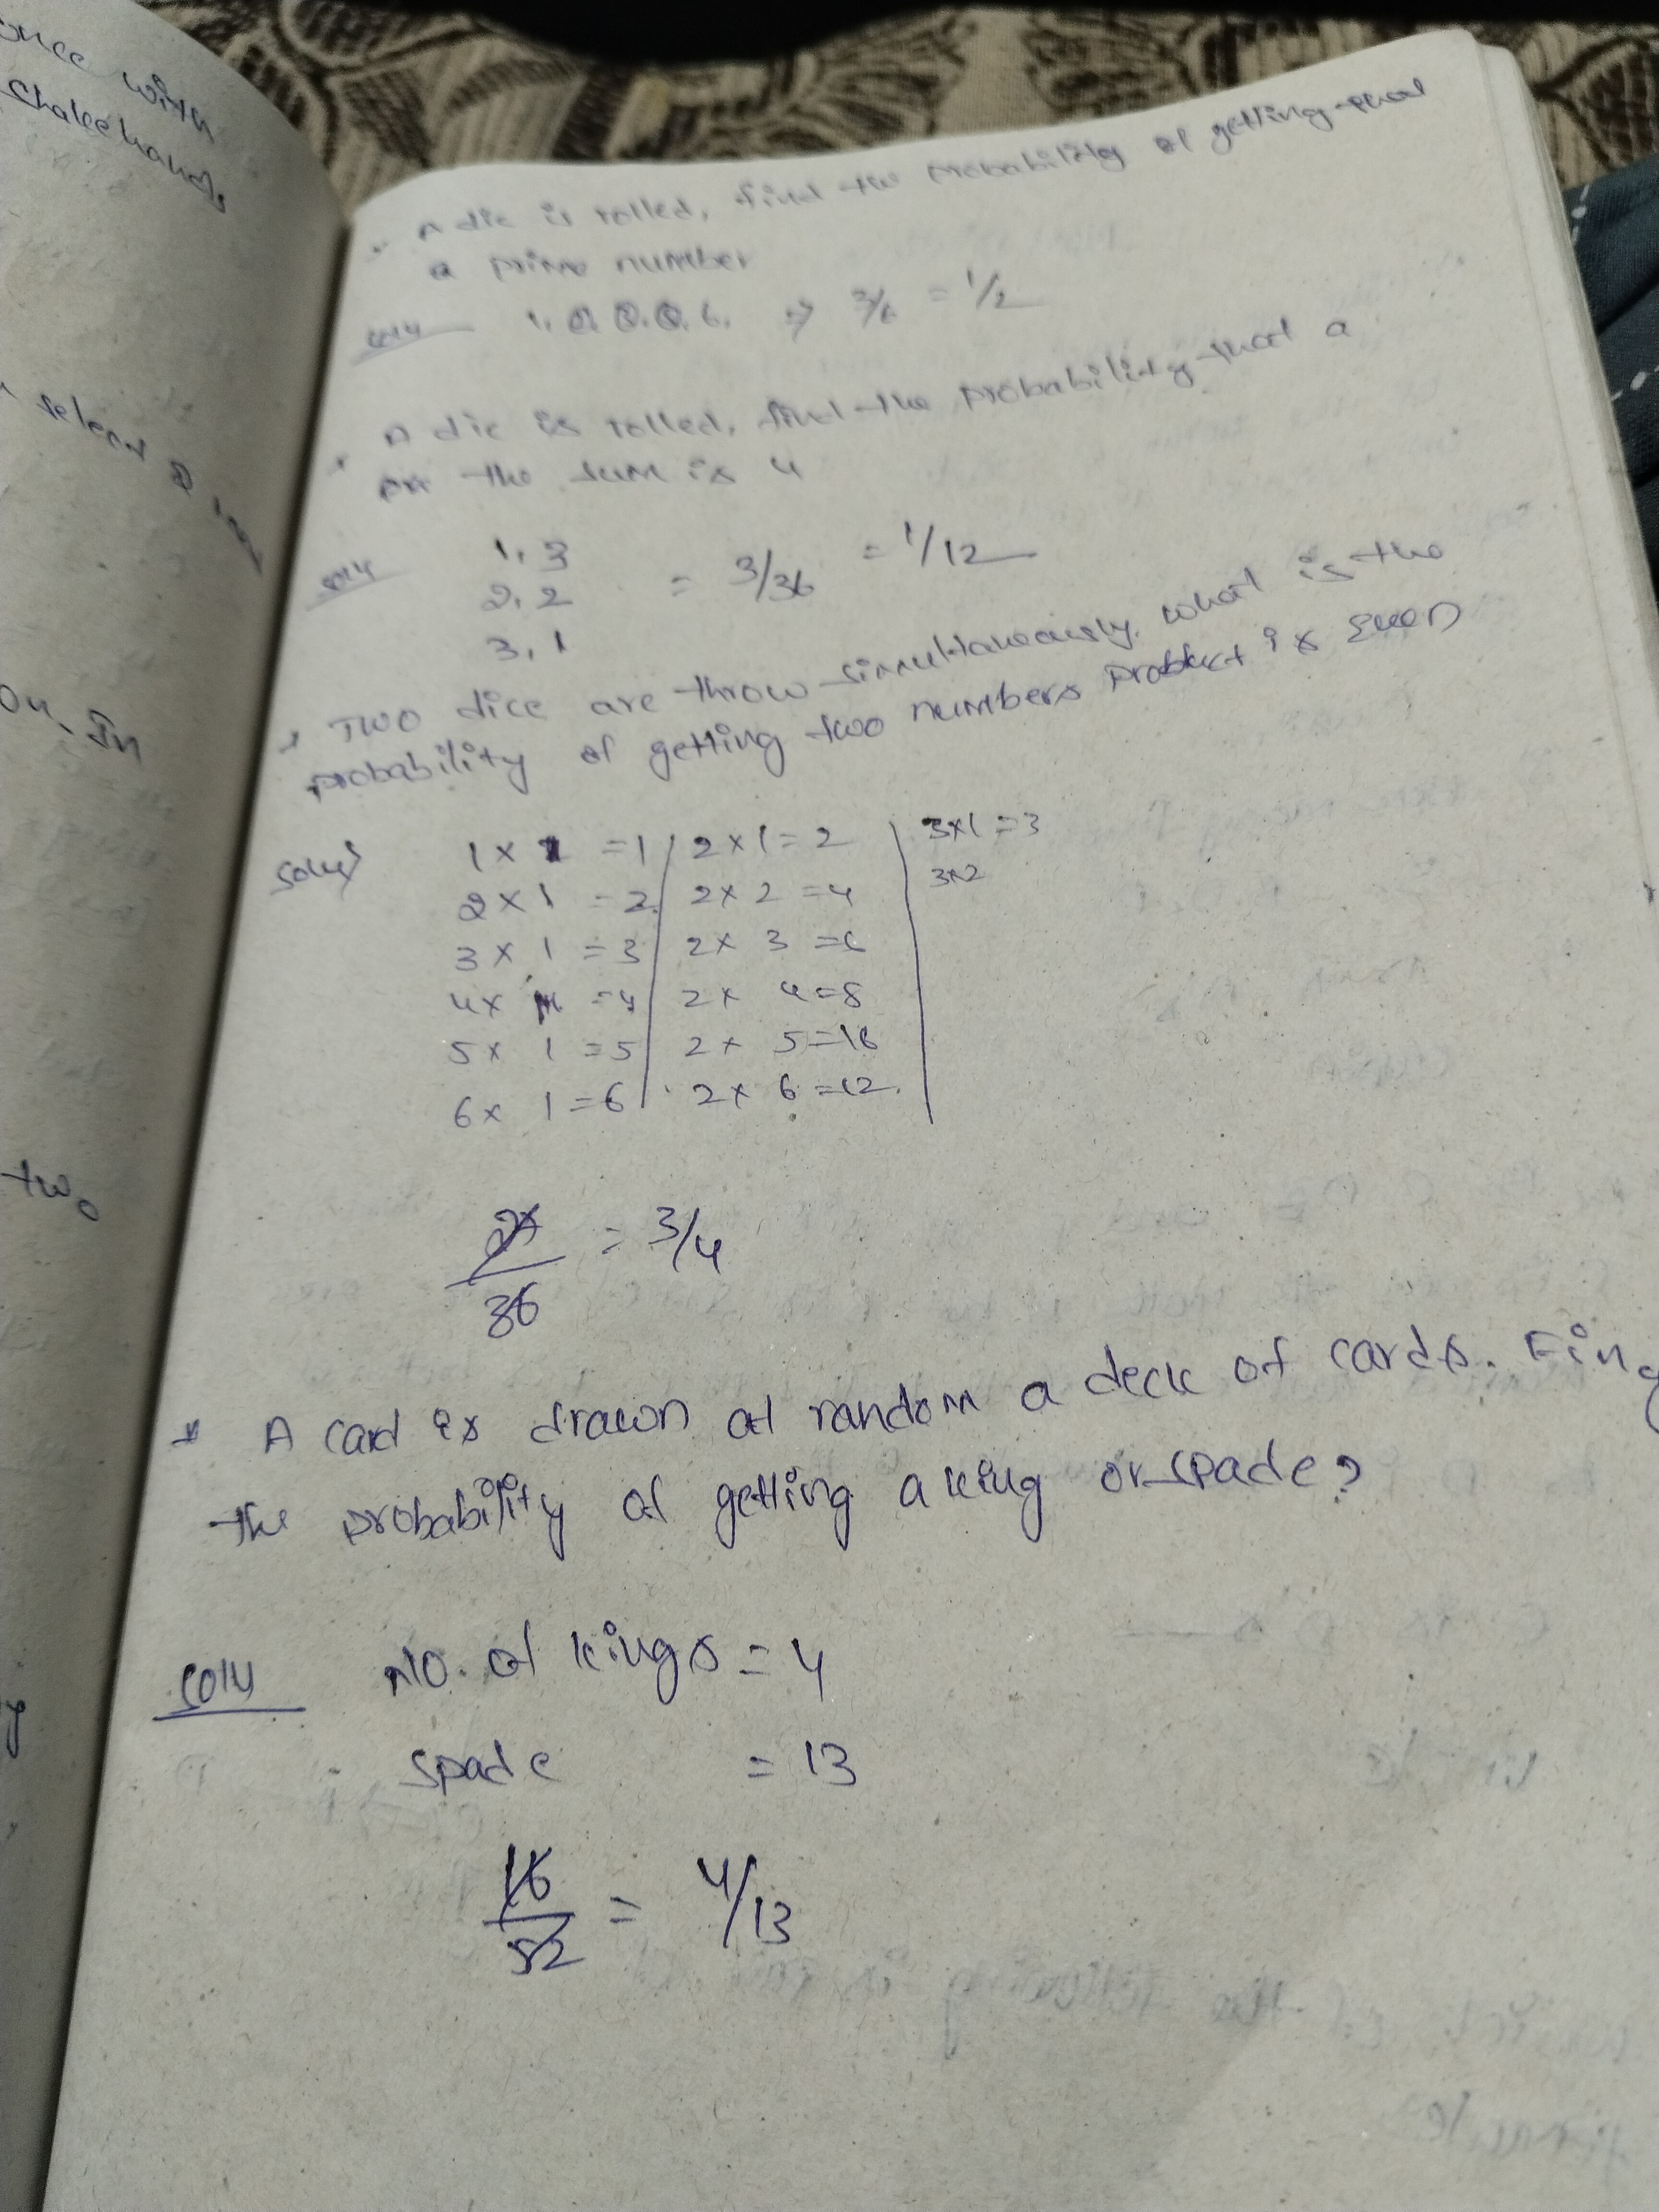 once with
Shakehands
select 2
on. In
two
y
* A die is rolled, find the probability of getting that
a prime number
Soln 1. 2. 3. 6. ⇒ 3/6 = 1/2
* A die is rolled, find the probability that a
the sum is 4
Soln
1, 3
2, 2 = 3/36 = 1/12
3, 1
* Two dice are throw simultaneously. what is the
probability of getting two numbers product is Even
Soln) 1 x 1 = 1 2 x 1 = 2 3x1 = 3
2 x 1 = 2 2 x 2 = 4 3x2
3 x 1 = 3 2 x 3 = 6
4 x = 4 2 x 4 = 8
5 x 1 = 5 2 x 5 = 10
6 x 1 = 6 2 x 6 = 12.
27
36 = 3/4
* A card is drawn at random a deck of cards. Find
the probability of getting a king or spade?
Soln No. of kings = 4
spade = 13
16
52 = 4/13